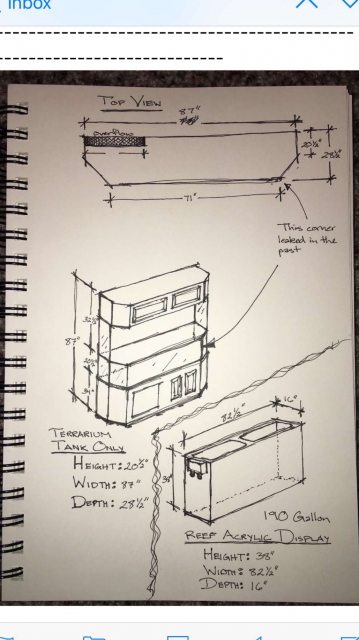 Inbox
TOP VIEW
87"
overflow
28½"
71"
This corner
leaked in the
past
87"
20½"
82½"
16"
38"
TERRARIUM
TANK ONLY
HEIGHT: 20½"
WIDTH: 87"
DEPTH: 28½"
190 Gallon
REEF ACRYLIC DISPLAY
HEIGHT: 38"
WIDTH: 82½"
DEPTH: 16"